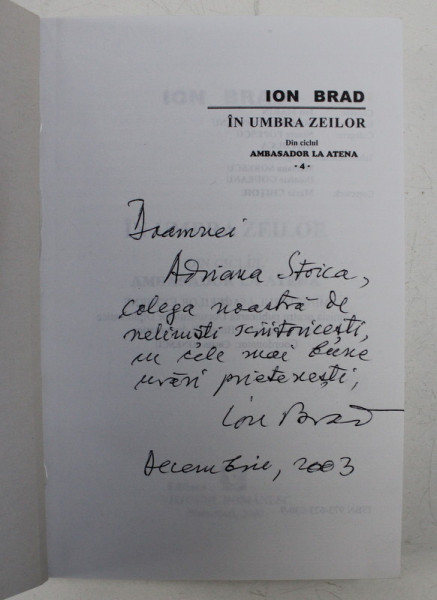 ION BRAD
ÎN UMBRA ZEILOR
Din ciclul
AMBASADOR LA ATENA
- 4 -
Doamnei
Adriana Stoica,
colega noastră de
neliniști scriitoricești,
cu cele mai bune
urări prietenești,
Ion Brad
Decembrie, 2003